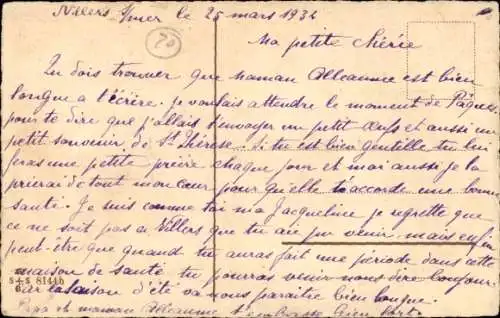 Villers s/mer le 25 mars 1932
70
Ma petite Chérie
Tu dois trouver que maman Alleaume est bien
longue a t'écrire. je voulais attendre le moment de Pâques
pour te dire que j'allais t'envoyer un petit Œufs et aussi un
petit souvenir de Ste Thérèse. Si tu est bien gentille tu lui
feras une petite prière chaque jour et moi aussi je la
prierai de tout mon cœur pour qu'elle t'accorde une bonne
santé. Je suis comme toi ma Jacqueline je regrette que
ce ne soit pas a Villers que tu aie pu venir. mais enfin
peut-être que quand tu auras fait une période dans cette
maison de santé tu pourras venir nous dire bonjour.
S+S 81410
Car la saison d'été va nous paraître bien longue.
Papa et maman Alleaume t'embrasse bien fort.